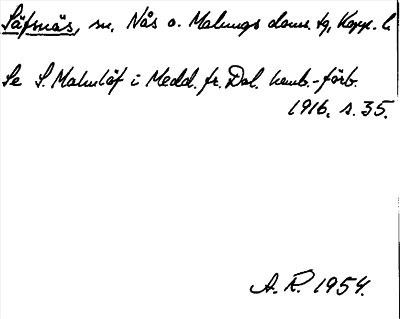 Säfsnäs, sn, Nås o. Malungs doms. tg, Kopp. l.
Se S. Malmlöf i Medd. fr. Dal. hemb.-förb.
1916, s. 35.
A. R. 1954.